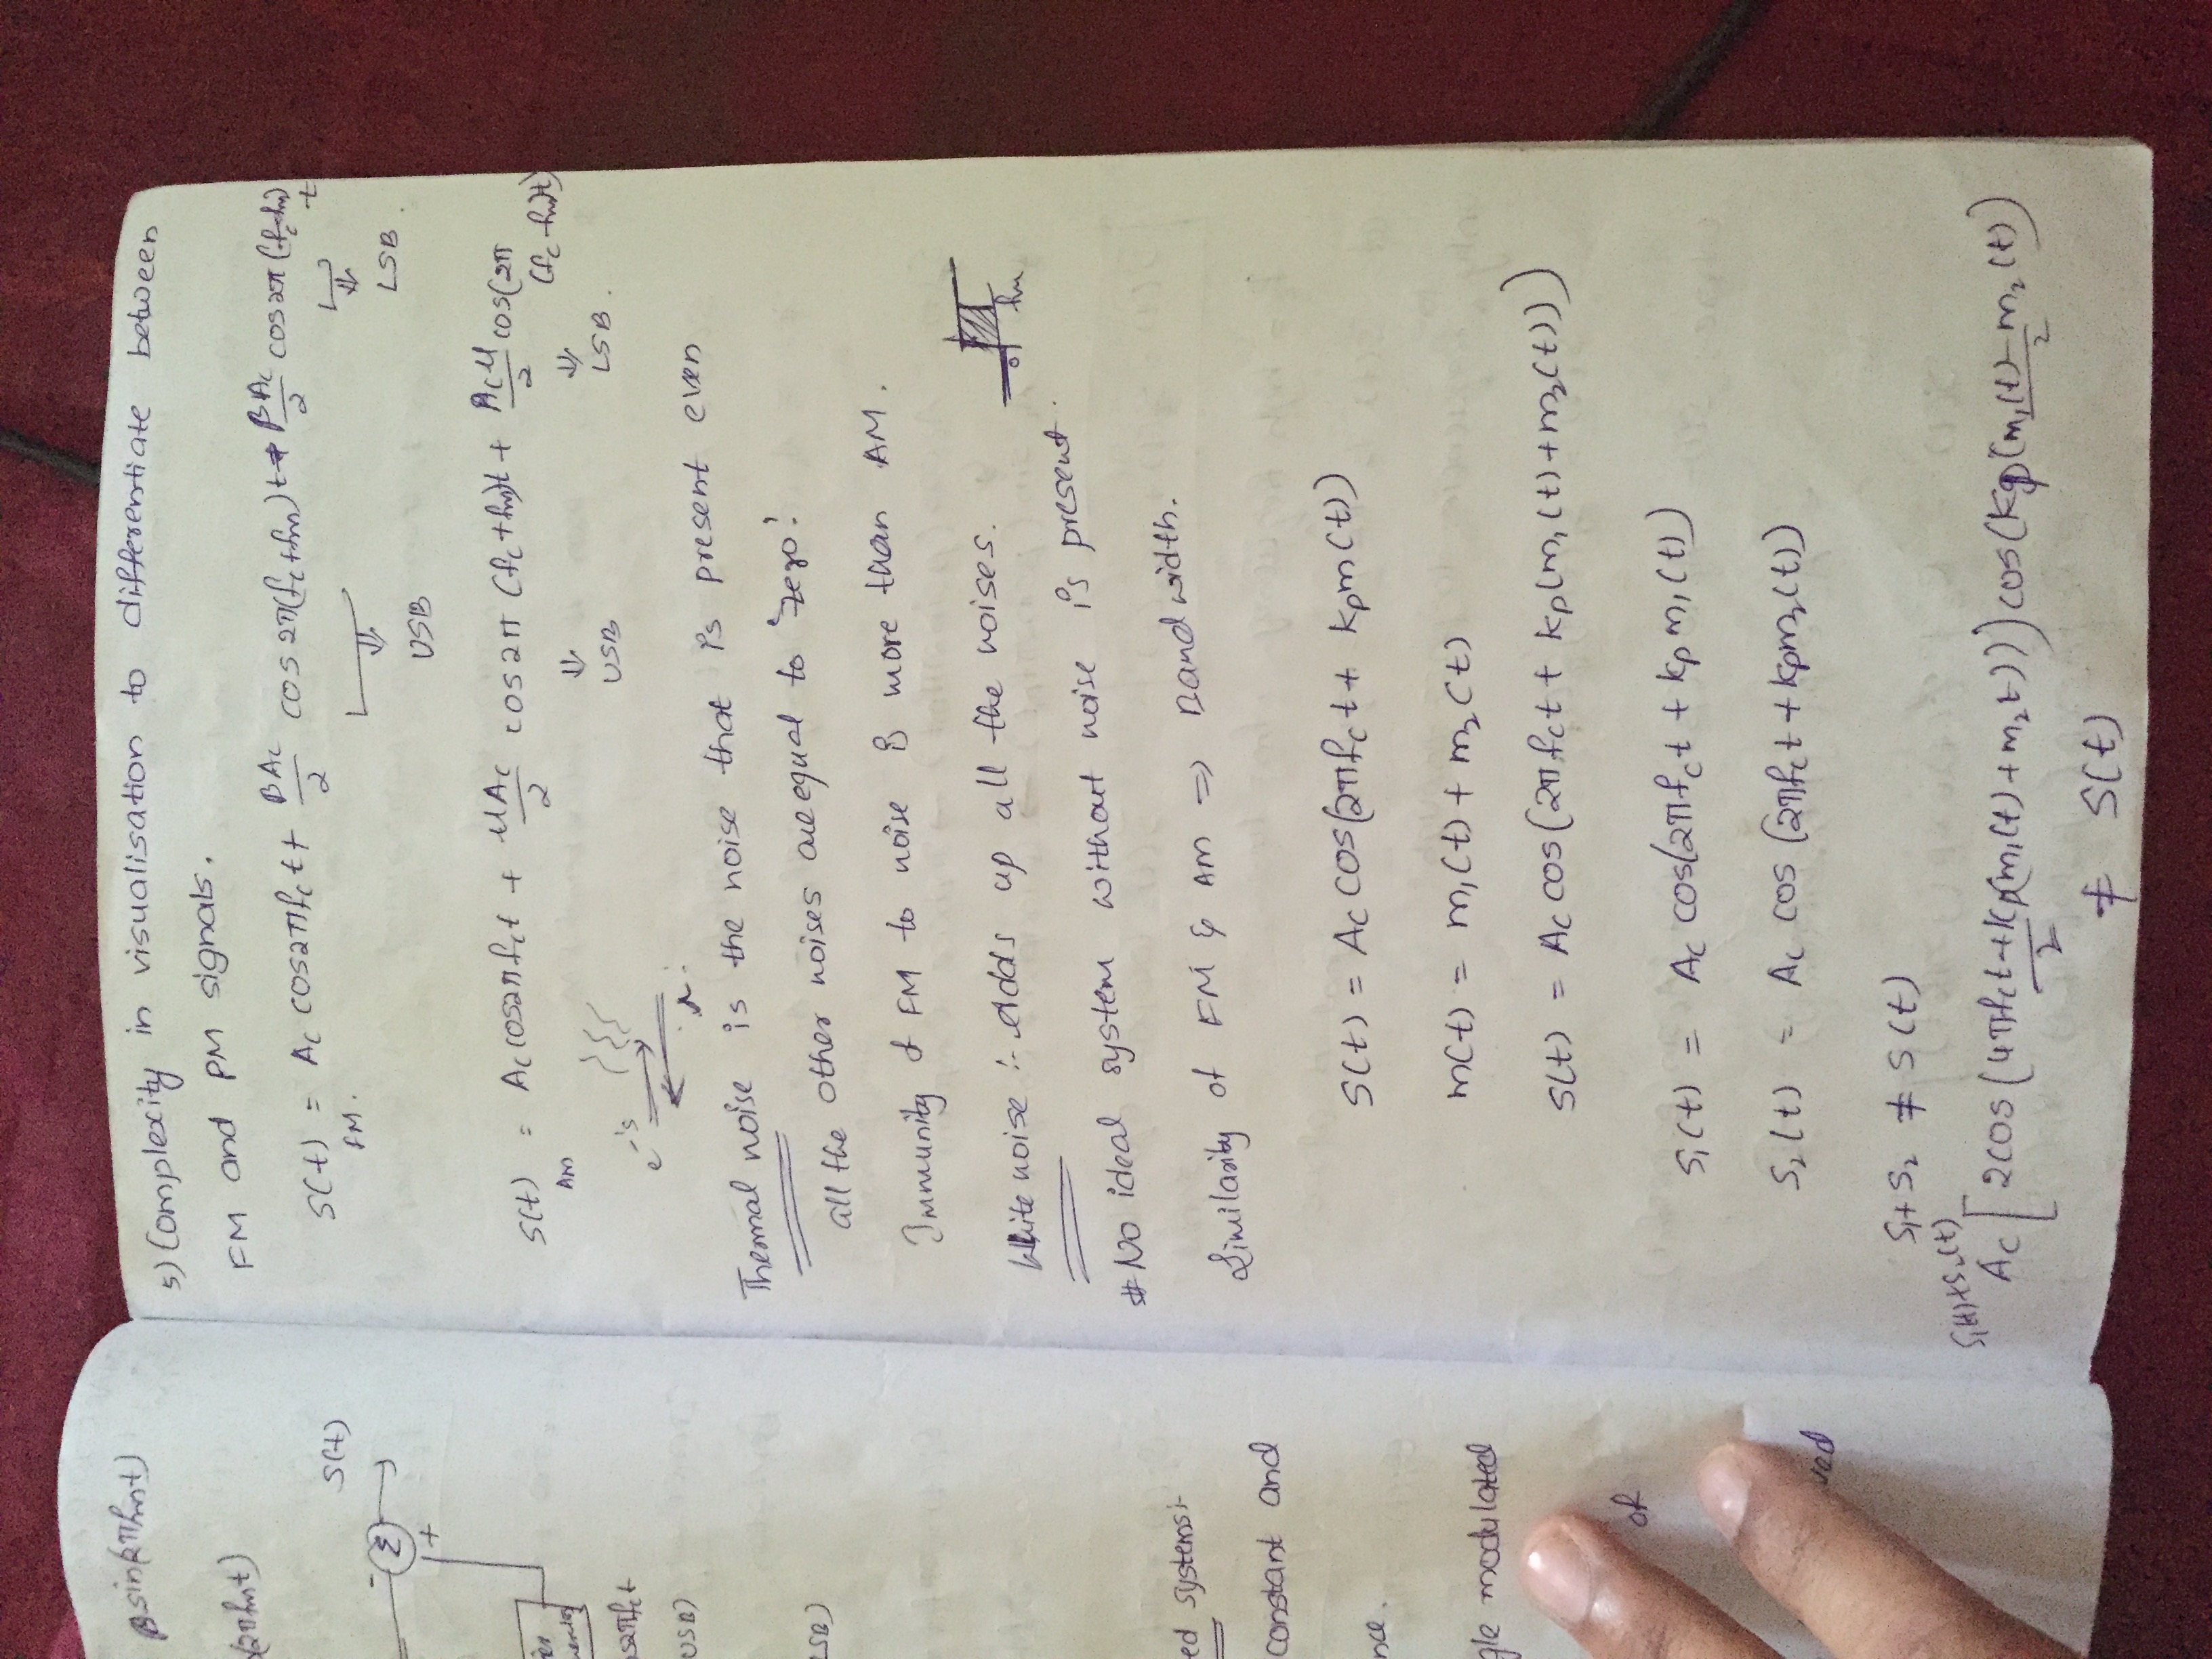 βsin(2πfmt)
(2πfmt)
S(t)
-
Σ
+
s2πfct
USB)
LSB)
ed systems:-
constant and
nce.
gle modulated
of
ved
5) Complexity in visualisation to differentiate between
FM and PM signals.
S(t) = Ac cos2πfct + βAc/2 cos2π(fc+fm)t - βAc/2 cos2π(fc-fm)t
FM.
USB
LSB.
S(t) = Ac cos2πfct + μAc/2 cos2π(fc+fm)t + Acμ/2 cos(2π(fc-fm)t)
AM
USB
LSB.
e-'s
Thermal noise is the noise that is present even
all the other noises are equal to 'zero'.
Immunity of FM to noise is more than AM.
White noise :- Adds up all the noises.
0 fm
# No ideal system without noise is present.
Similarity of FM & AM ⇒ Bandwidth.
S(t) = Ac cos(2πfct + kpm(t))
m(t) = m1(t) + m2(t)
S(t) = Ac cos(2πfct + kp(m1(t)+m2(t)))
S1(t) = Ac cos(2πfct + kpm1(t))
S2(t) = Ac cos(2πfct + kpm2(t))
S1+S2 ≠ S(t)
S1(t)+S2(t)
Ac[2cos(4πfct+kp(m1(t)+m2t))/2)cos(kp(m1(t)-m2(t))/2
≠ S(t)